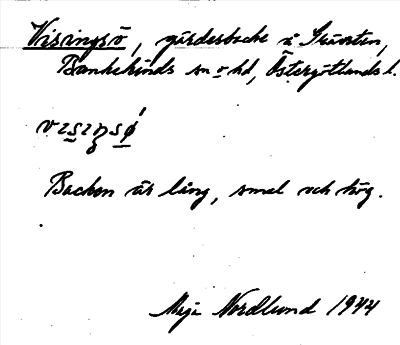 Visingsö, gärdesbacke å Svärten,
Bankekinds sn o hd, Östergötlands l.
Backen är lång, smal och hög.
Maja Nordlund 1944